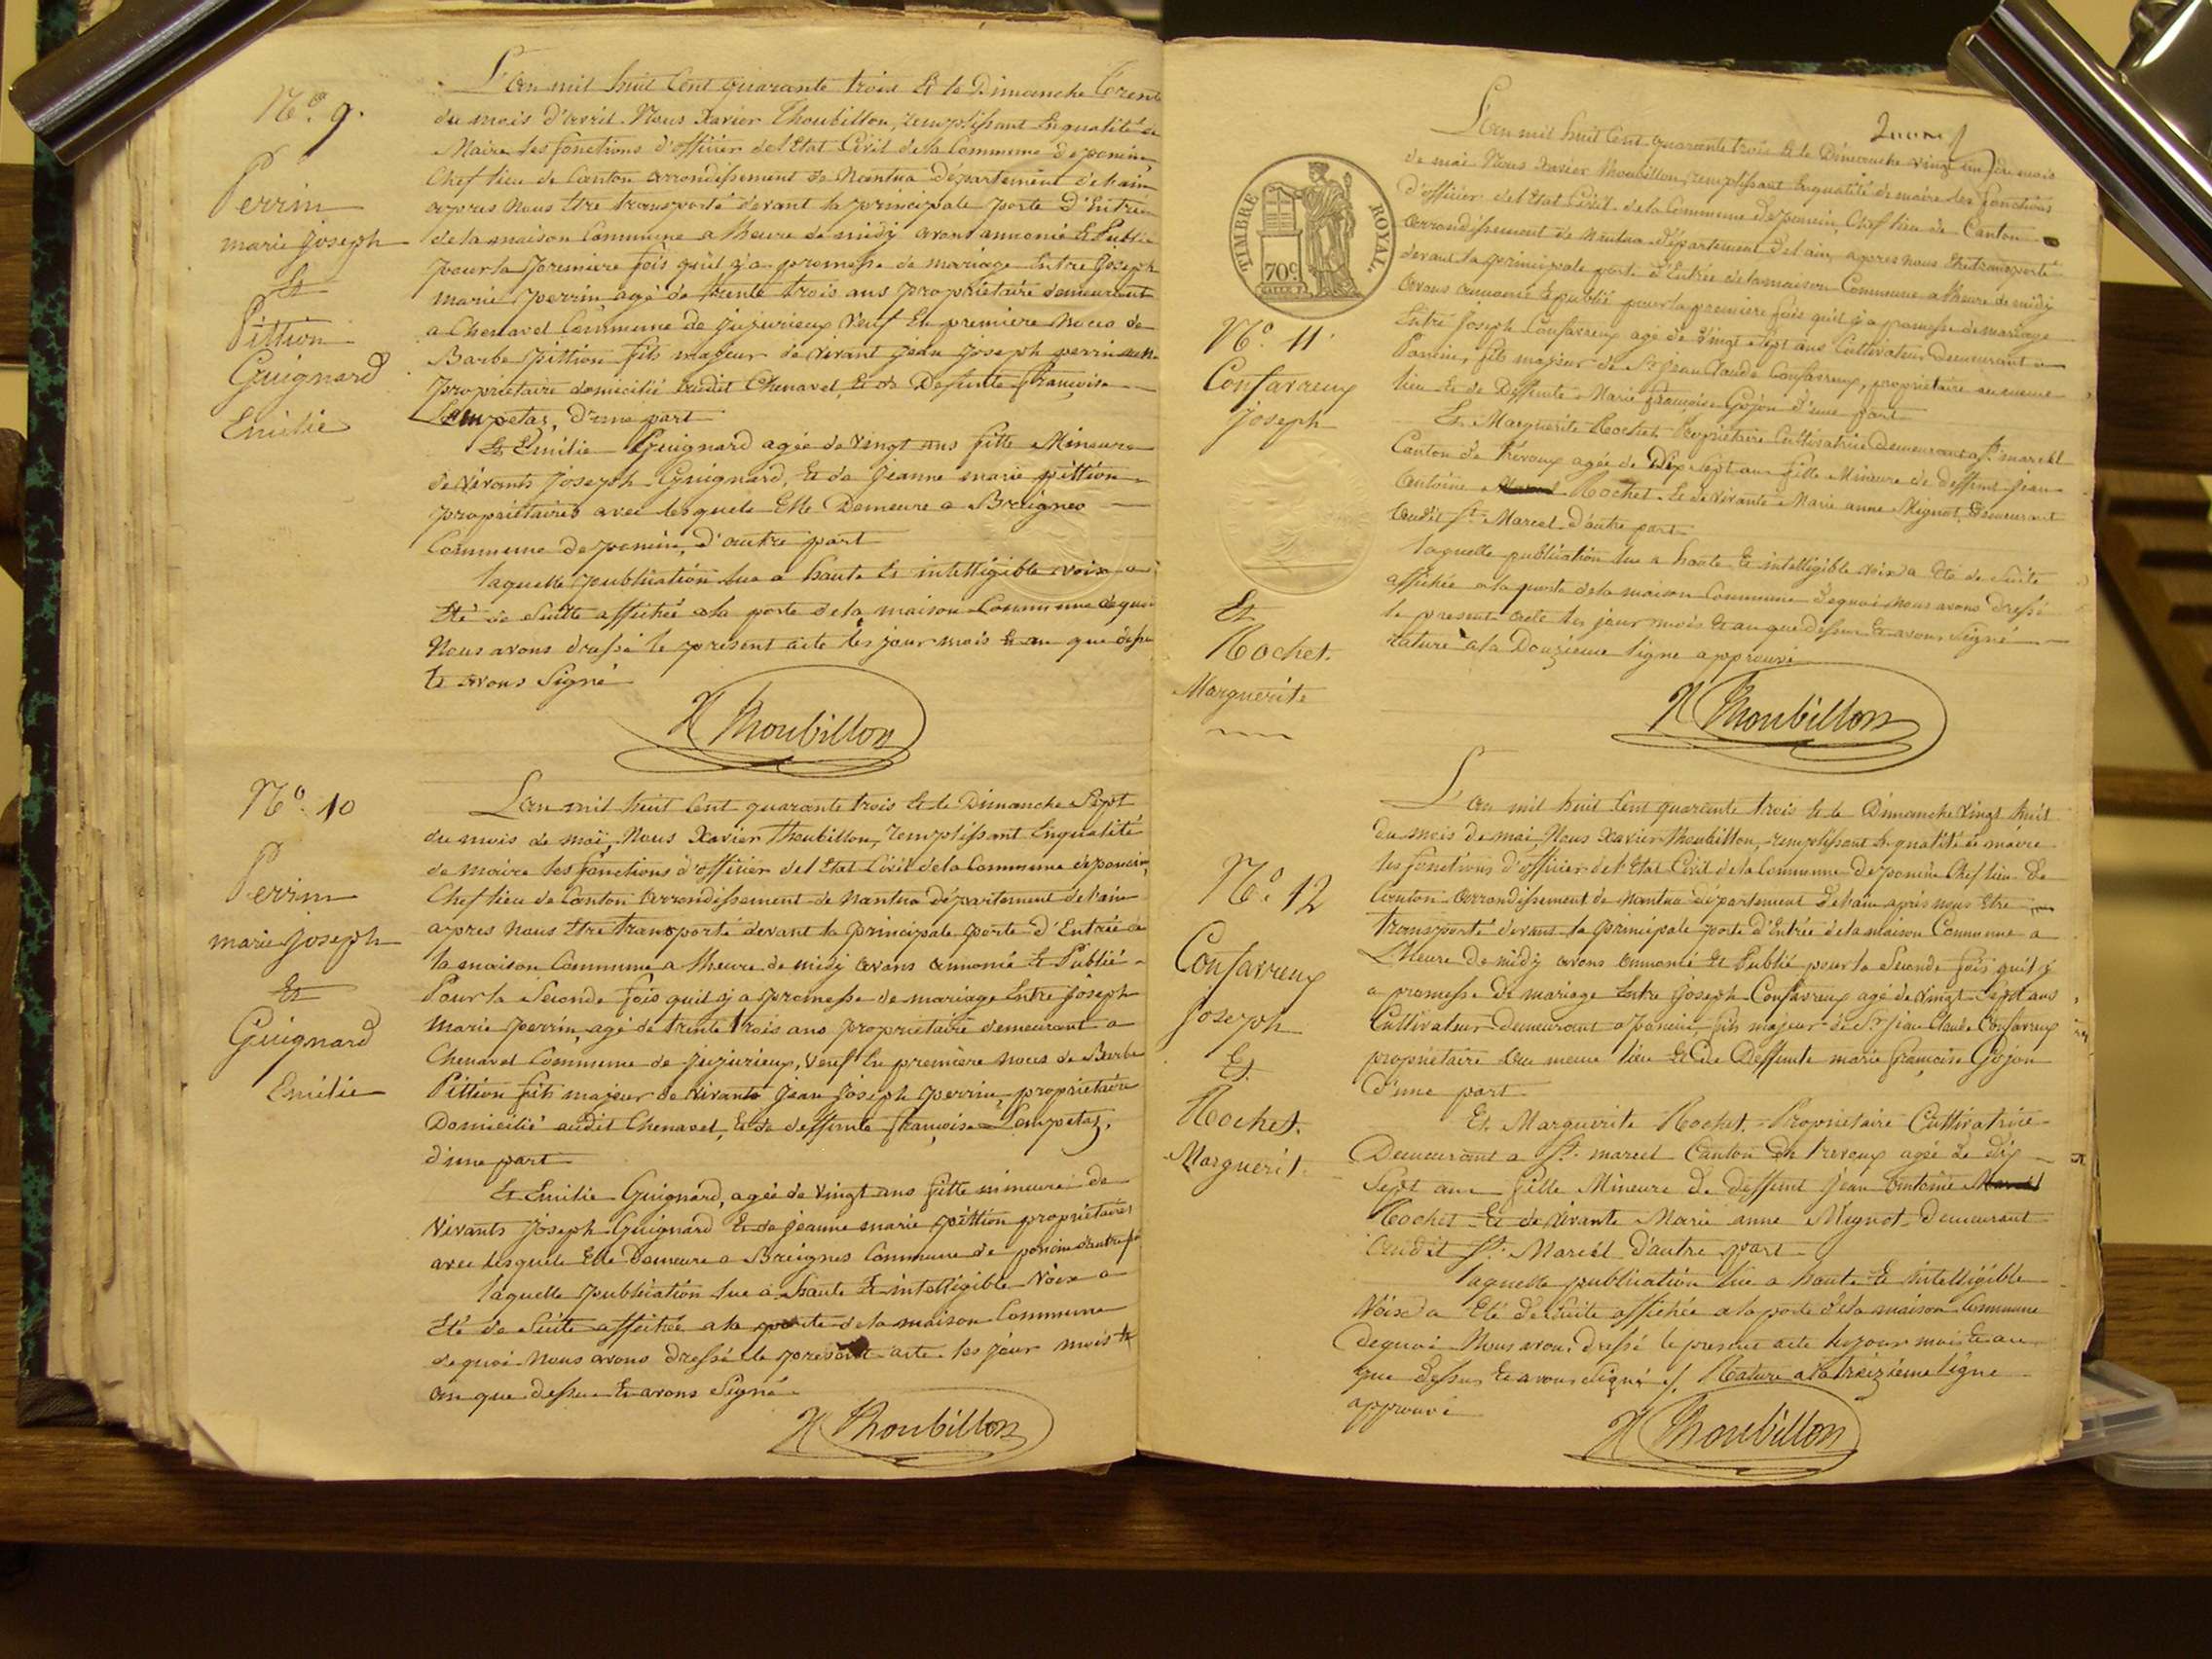 N.° 9.
Perrin
marie Joseph
Et
Pittion
Guignard
Emilie
L'an mil huit Cent quarante trois Et le Dimanche Trente
du mois d'avril Nous Xavier Thoubillon, remplissant Enqualité de
Maire les fonctions d'officier de l'Etat Civil de la Commune de poncin
Chef lieu de Canton arrondissement de Nantua Département de l'ain
apres Nous Etre transporté devant la principale porte D'Entrée
de la maison Commune a l'heure de midi avons annoncé Et Publié
pour la premiere fois qu'il y a promesse de mariage Entre Joseph
marie perrin agé de trente trois ans propriétaire demeurant
a Chenavel Commune de jujurieux Veuf En premiere Noces de
Barbe Pittion fils majeur de vivant jean joseph perrin
propriétaire domicilié audit Chenavel, Et de Deffunte françoise
Lempetaz, D'une part
Et Emilie Guignard agée de Vingt ans fille Mineure
de vivants Joseph Guignard, Et de Jeanne marie pittion
propriétaires avec lesquels Elle Demeure a Breignes
Commune de poncin, d'autre part
laquelle publication lue a haute Et intelligible voix a
Eté de Suitte affichée a la porte de la maison Commune de quoi
Nous avons dressé le présent acte les jour mois Et an que dessus
Et avons Signé
X Thoubillon
N.° 10
Perrin
marie Joseph
Et
Guignard
Emilie
L'an mil huit Cent quarante trois Et le Dimanche Sept
du mois de mai, Nous Xavier Thoubillon, remplissant Enqualité
de maire les fonctions d'officier de l'Etat Civil de la Commune de poncin,
Chef lieu de Canton arrondissement de Nantua département de l'ain
apres Nous Etre transporté devant la principale porte d'Entrée de
la maison Commune a l'heure de midi avons annoncé Et Publié
Pour la Seconde fois qu'il y a promesse de mariage Entre Joseph
Marie perrin, agé de trente trois ans propriétaire demeurant a
Chenavel Commune de jujurieux, Veuf En premiere Noces de Barbe
Pittion fils majeur de Vivants Jean Joseph perrin, propriétaire
Domicilié audit Chenavel, Et de deffunte françoise Lempetaz,
d'une part
Et Emilie Guignard, agée de Vingt ans fille mineure de
Vivants Joseph Guignard Et de jeanne marie pittion propriétaires
avec lesquels Elle Demeure a Breignes Commune de poncin d'autre pt
laquelle publication lue a haute Et intelligible Voix a
Eté de Suite affichée a la porte de la maison Commune
de quoi Nous avons Dressé le présent acte les jour mois Et
an que dessus Et avons Signé
X Thoubillon
TIMBRE ROYAL.
70c
N.° 11.
Confavreux
Joseph
Et
Rochet.
Marguerite
L'an mil huit Cent quarante trois Et le Dimanche vingt un du mois
de mai Nous Xavier Thoubillon, remplissant Enqualité de maire les fonctions
d'officier de l'Etat Civil de la Commune de poncin, Chef lieu de Canton
arrondissement de Nantua département de l'ain, apres nous Etre transporté
devant la principale porte d'Entrée de la maison Commune a l'heure de midi
avons annoncé Et publié pour la premiere fois qu'il y a promesse de mariage
Entre Joseph Confavreux agé de Vingt Sept ans Cultivateur demeurant a
Poncin, fils majeur de Sr. Jean Claude Confavreux, propriétaire au meme
lieu Et de Deffunte Marie françoise Gojon d'une part
Et Marguerite Rochet Propriétaire Cultivatrice demeurant a St. marcel
Canton de Trévoux agée de Dix Sept ans fille Mineure de deffunt jean
Antoine Rochet Et de vivante Marie anne Mignot, Demeurant
audit St. Marcel d'autre part
laquelle publication lue a haute Et intelligible voix a Eté de Suite
affichée a la porte de la maison Commune de quoi Nous avons dressé
le present acte les jour mois Et an que dessus Et avons Signé
rature a la Douzieme ligne approuvé
X Thoubillon
N.° 12
Confavreux
Joseph
Et
Rochet.
Marguerite
L'an mil huit Cent quarante trois Et le Dimanche Vingt huit
du mois de mai, Nous Xavier Thoubillon, remplissant En qualité de maire
les fonctions d'officier de l'Etat Civil de la Commune de poncin Chef lieu de
Canton arrondissement de Nantua département de l'ain apres nous Etre
transporté devant la principale porte d'Entrée de la maison Commune a
L'heure de midi avons annoncé Et Publié pour la Seconde fois qu'il y
a promesse de mariage Entre Joseph Confavreux agé de vingt Sept ans
Cultivateur demeurant a poncin fils majeur de Sr. jean Claude Confavreux
propriétaire au meme lieu Et de Deffunte marie françoise Gojon
d'une part
Et Marguerite Rochet, Propriétaire Cultivatrice
Demeurant a St. marcel Canton de trevoux agée de dix
Sept ans fille Mineure de deffunt Jean Antoine
Rochet Et de vivante Marie anne Mignot demeurant
audit St. Marcel d'autre part
laquelle publication lue a haute Et intelligible
Voix a Eté de Suite affichée a la porte de la maison Commune
de quoi Nous avons dressé le present acte les jour mois Et an
que dessus Et avons Signé Rature a la treizieme ligne
approuvé
X Thoubillon